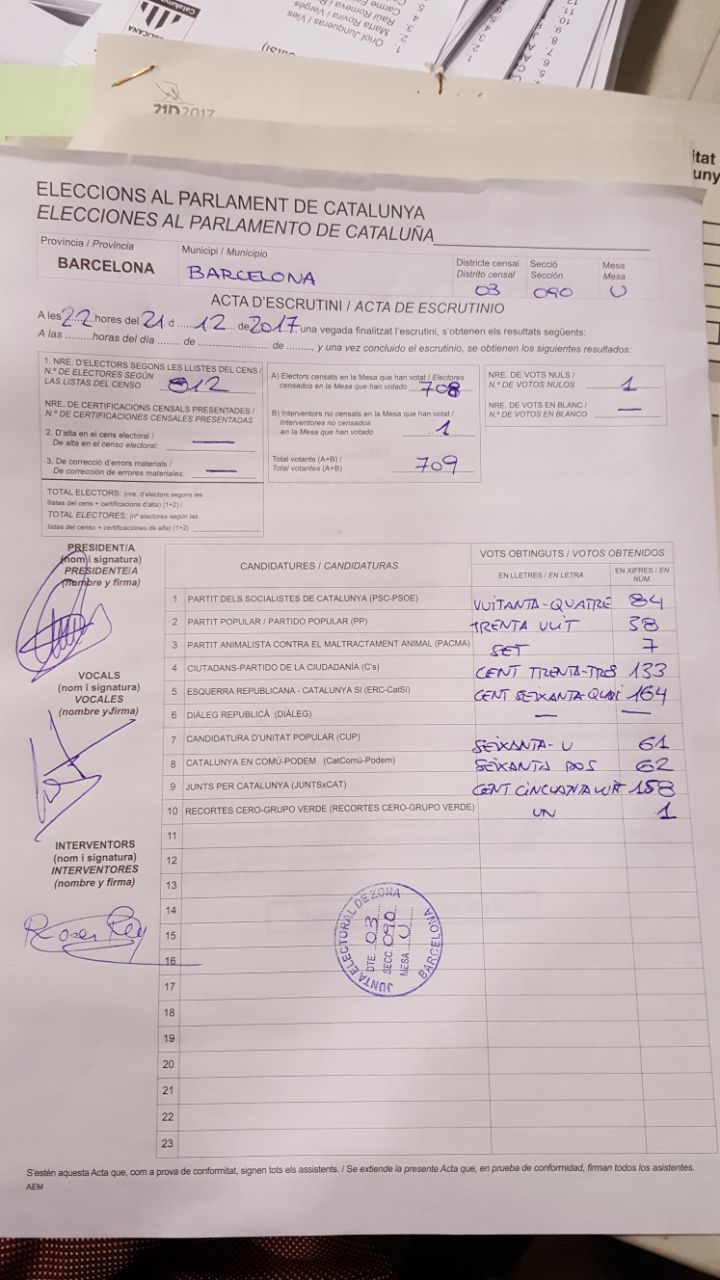 Oriol Junqueras i Vies
Marta Rovira i Vergés
21D2017
ELECCIONS AL PARLAMENT DE CATALUNYA
ELECCIONES AL PARLAMENTO DE CATALUÑA
Provincia / Provincia
BARCELONA
Municipi / Municipio
BARCELONA
Districte censal
Distrito censal
03
Secció
Sección
090
Mesa
Mesa
U
ACTA D'ESCRUTINI / ACTA DE ESCRUTINIO
A les 22 hores del 21 d ...... 12 ... de 2017 una vegada finalitzat l'escrutini, s'obtenen els resultats següents:
A las .........horas del día ....... de ....................... de ........, y una vez concluido el escrutinio, se obtienen los siguientes resultados:
1. NRE. D'ELECTORS SEGONS LES LLISTES DEL CENS /
N.º DE ELECTORES SEGÚN
LAS LISTAS DEL CENSO 812
NRE. DE CERTIFICACIONS CENSALS PRESENTADES /
N.º DE CERTIFICACIONES CENSALES PRESENTADAS
2. D'alta en el cens electoral /
De alta en el censo electoral: —
3. De correcció d'errors materials /
De corrección de errores materiales: —
TOTAL ELECTORS: (nre. d'electors segons les
llistes del cens + certificacions d'alta) (1+2) /
TOTAL ELECTORES: (nº electores según las
listas del censo + certificaciones de alta) (1+2)
A) Electors censats en la Mesa que han votat / Electores
censados en la Mesa que han votado 708
B) Interventors no censats en la Mesa que han votat /
Interventores no censados
en la Mesa que han votado 1
Total votants (A+B) /
Total votantes (A+B) 709
NRE. DE VOTS NULS /
N.º DE VOTOS NULOS 1
NRE. DE VOTS EN BLANC /
N.º DE VOTOS EN BLANCO —
PRESIDENT/A
(nom i signatura)
PRESIDENTE/A
(nombre y firma)
VOCALS
(nom i signatura)
VOCALES
(nombre y firma)
INTERVENTORS
(nom i signatura)
INTERVENTORES
(nombre y firma)
CANDIDATURES / CANDIDATURAS
VOTS OBTINGUTS / VOTOS OBTENIDOS
EN LLETRES / EN LETRA
EN XIFRES / EN NÚM.
1 PARTIT DELS SOCIALISTES DE CATALUNYA (PSC-PSOE) VUITANTA-QUATRE 84
2 PARTIT POPULAR / PARTIDO POPULAR (PP) TRENTA VUIT 38
3 PARTIT ANIMALISTA CONTRA EL MALTRACTAMENT ANIMAL (PACMA) SET 7
4 CIUTADANS-PARTIDO DE LA CIUDADANÍA (C's) CENT TRENTA-TRES 133
5 ESQUERRA REPUBLICANA - CATALUNYA SI (ERC-CatSí) CENT SEIXANTA-QUAT 164
6 DIÀLEG REPUBLICÀ (DIÀLEG) — —
7 CANDIDATURA D'UNITAT POPULAR (CUP) SEIXANTA-U 61
8 CATALUNYA EN COMÚ-PODEM (CatComú-Podem) SEIXANTA DOS 62
9 JUNTS PER CATALUNYA (JUNTSxCAT) CENT CINCUANTA VUIT 158
10 RECORTES CERO-GRUPO VERDE (RECORTES CERO-GRUPO VERDE) UN 1
11
12
13
14
15
16
17
18
19
20
21
22
23
JUNTA ELECTORAL DE ZONA
DTE. 03
SECC. 090
MESA U
BARCELONA
S'estén aquesta Acta que, com a prova de conformitat, signen tots els assistents. / Se extiende la presente Acta que, en prueba de conformidad, firman todos los asistentes.
AEM